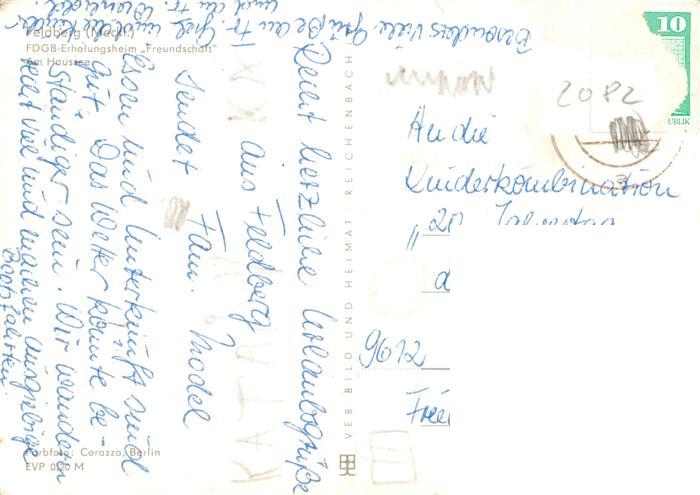 Feldberg (Meckl.)
FDGB-Erholungsheim "Freundschaft"
Am Haussee
Recht herzliche Urlaubsgrüße
aus Feldberg
sendet Fam. Model
Essen und Unterkunft sind
gut. Das Wetter könnte be-
ständiger sein. Wir wandern
sehr viel und machen ausgiebige
Bootsfahrten.
Besonders viele Grüße an Fr. Giel
und an Fr.
KATRIN
Farbfoto: Corazza, Berlin
EVP 0,20 M
VEB BILD UND HEIMAT REICHENBACH
10
UBLIK
2082
An die
Kinderkombination
„20
d
9612